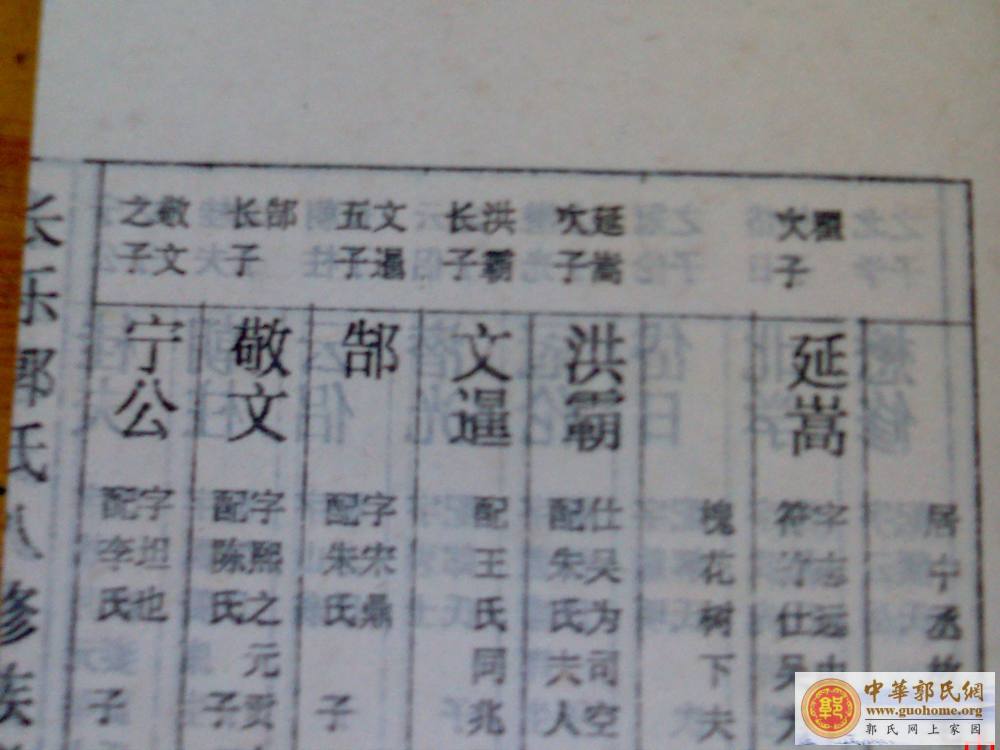 居宁丞
次子
延嵩
字志远
符竹仕吴
槐花树下夫
延嵩
次子
洪霸
仕吴为司空
配朱氏夫人
洪霸
长子
文暹
配王氏同兆
文暹
五子
郜
字宋鼎
配朱氏 子
郜
长子
敬文
字熙之元
配陈氏 子
敬文
之子
宁公
字坦也
配李氏 子
长乐郭氏八修族
中華郭氏網
www.guohome.org
郭氏网上家园